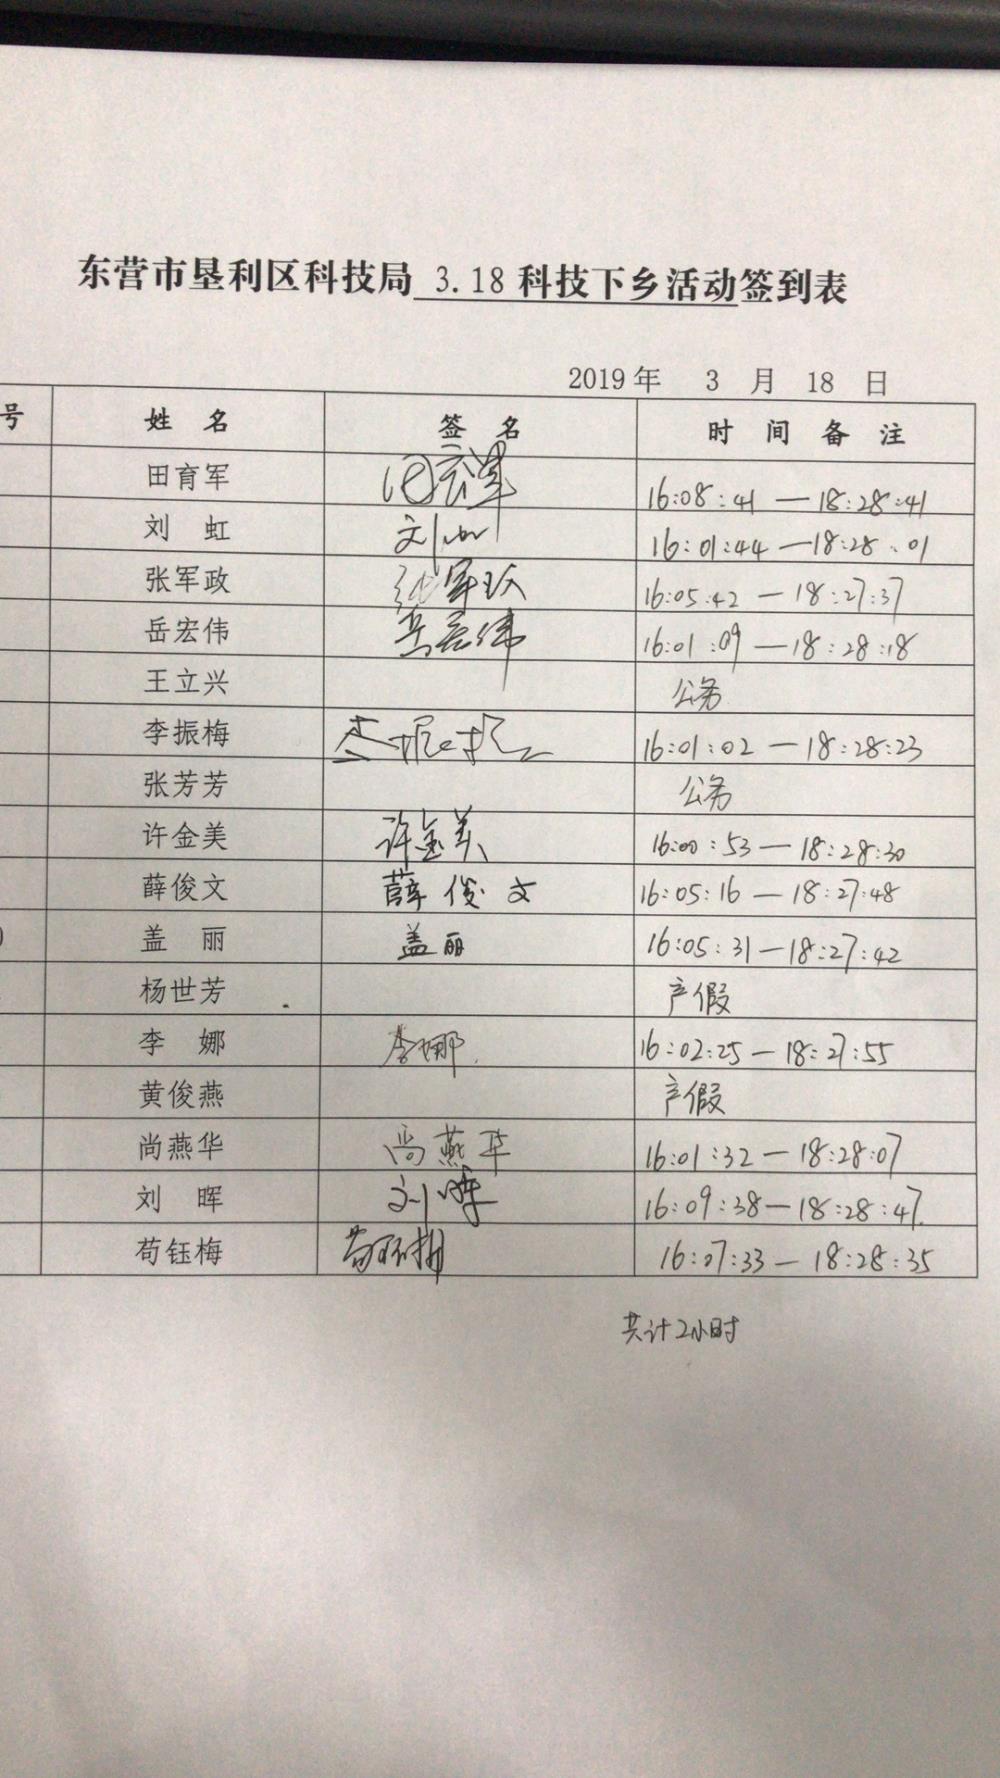 东营市垦利区科技局 3.18 科技下乡活动签到表
2019年 3 月 18 日
号 姓 名 签 名 时 间 备 注
田育军 田育军 16:08:41—18:28:41
刘 虹 刘虹 16:01:44—18:28:01
张军政 张军政 16:05:42—18:27:37
岳宏伟 岳宏伟 16:01:09—18:28:18
王立兴 公务
李振梅 李振梅 16:01:02—18:28:23
张芳芳 公务
许金美 许金美 16:00:53—18:28:30
薛俊文 薛俊文 16:05:16—18:27:48
盖 丽 盖丽 16:05:31—18:27:42
杨世芳 产假
李 娜 李娜 16:02:25—18:27:55
黄俊燕 产假
尚燕华 尚燕华 16:01:32—18:28:07
刘 晖 刘晖 16:09:38—18:28:47
苟钰梅 苟钰梅 16:07:33—18:28:35
共计2小时